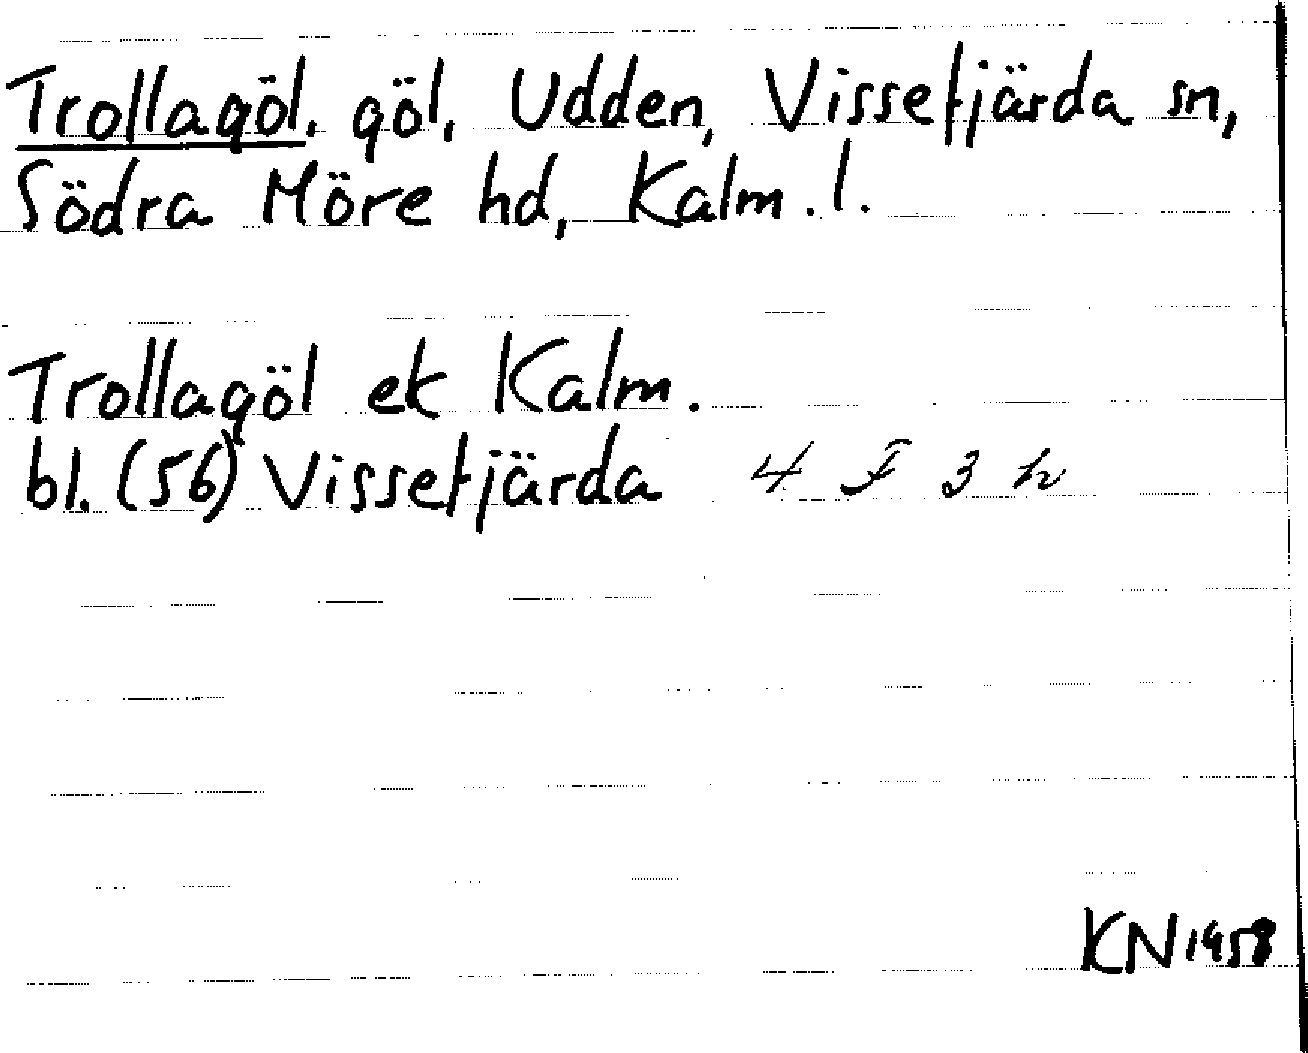 Trollagöl, göl, Udden, Vissefjärda sn,
Södra Möre hd, Kalm. l.
Trollagöl ek Kalm.
bl. (56) Vissefjärda 4 F 3 h
KN 1958